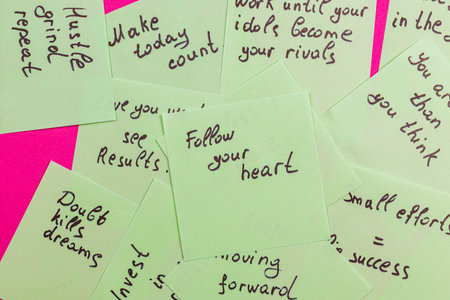 Hustle
grind
repeat
Make
today
count
work until your
idols become
your rivals
in the
You are
than
you think
see
Results.
Follow
your
heart
Doubt
kills
dreams
Invest
in
moving
forward
small efforts
=
success